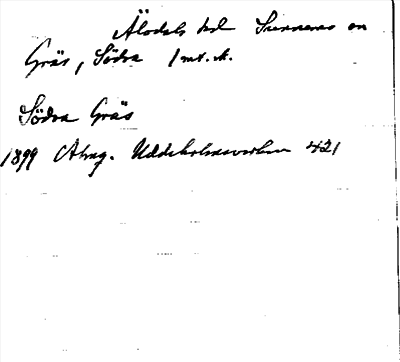 Älvdals hd Sunnemo sn
Gräs, Södra 1 mt. sk.
Södra Gräs
1899 Abrag. Uddeholmsverken 421